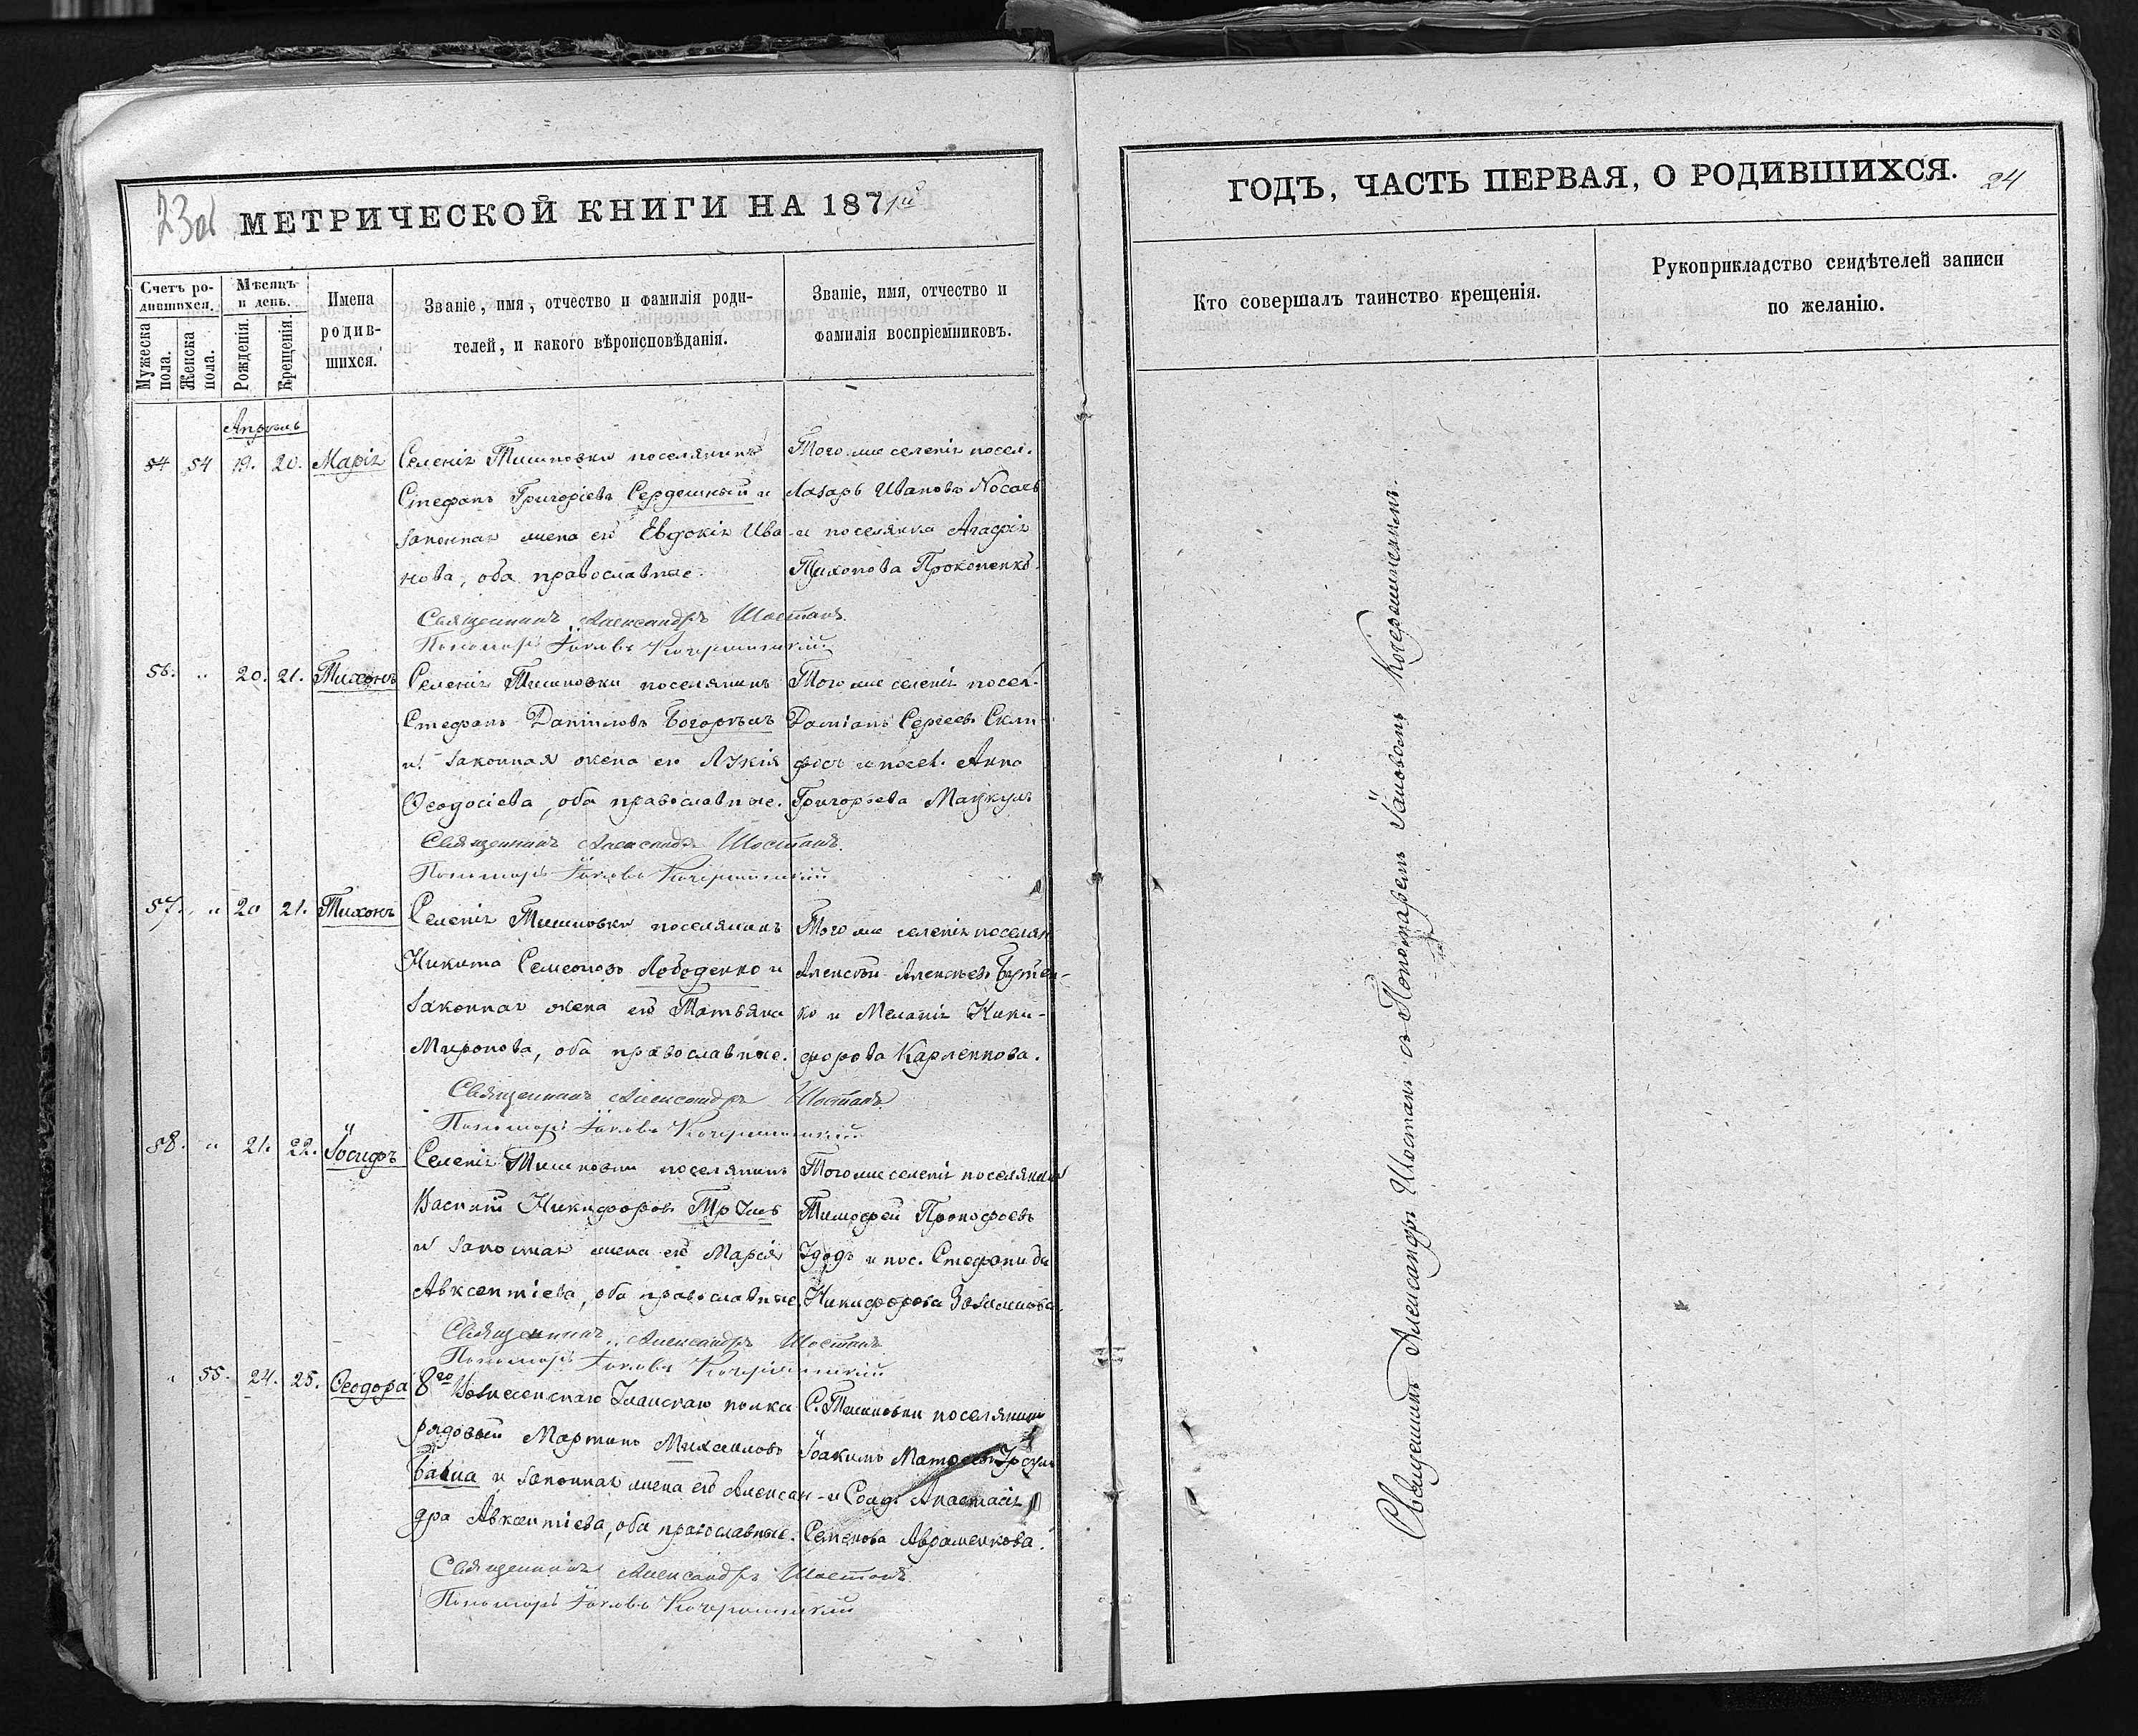 23об
МЕТРИЧЕСКОЙ КНИГИ НА 1871й
Счетъ родившихся.
Мужеска пола.
Женска пола.
Мѣсяцъ и день.
Рожденія.
Крещенія.
Имена родившихся.
Званіе, имя, отчество и фамилія роди-
телей, и какого вѣроисповѣданія.
Званіе, имя, отчество и
фамилія воспріемниковъ.
Апрѣль
54 54 19. 20. Марія
Селенія Тишковки поселянинъ
Стефанъ Григоріевъ Сердешный и
законная жена его Евдокія Ива-
нова, оба православные.
Того же селенія посел.
Лазарь Ивановъ Носачъ
и поселянка Агафія
Тихонова Прокопенко
Священникъ Александръ Шостакъ
Пономарь Іаковъ
56. „ 20. 21. Тихонъ
Селенія Тишковки поселянинъ
Стефанъ Даниловъ
и законная жена его Лукія
Ѳеодосіева, оба православные.
Того же селенія посел.
Даміанъ Сергеевъ
и посел. Анна
Григорьева Мацкулъ
Священникъ Александръ Шостакъ.
Пономарь Іаковъ
57. „ 20 21. Тихонъ
Селенія Тишковки поселянинъ
Никита Семеоновъ Лободенко и
законная жена его Татьяна
Миронова, оба православные.
Того же селенія поселян
Алексѣй Алексѣевъ Бутен-
ко и Меланія Ники-
форова Карпенкова.
Священникъ Александръ Шостакъ
Пономарь Іаковъ
58. „ 21. 22. Іосифъ
Селенія Тишковки поселянинъ
Василій Никифоровъ
и законная жена его Марія
Авксентіева, оба православные.
Того же селенія поселянинъ
Тимофей Прокофьевъ
и пос. Стефанида
Никифорова
Священникъ Александръ Шостакъ
Пономарь Іаковъ
„ 55. 24. 25. Ѳеодора
8го Вознесенскаго Уланскаго полка
рядовый Мартинъ Михаиловъ
и законная жена его Алексан-
дра Авксентіева, оба православные.
С. Тишковки поселянинъ
Іоакимъ
и Солд. Анастасія
Семенова Авраменкова.
Священникъ Александръ Шостакъ.
Пономарь Іаковъ
ГОДЪ, ЧАСТЬ ПЕРВАЯ, О РОДИВШИХСЯ. 24
Кто совершалъ таинство крещенія.
Рукоприкладство свидѣтелей записи
по желанію.
Священникъ Александръ Шостакъ съ Пономаремъ Іаковомъ